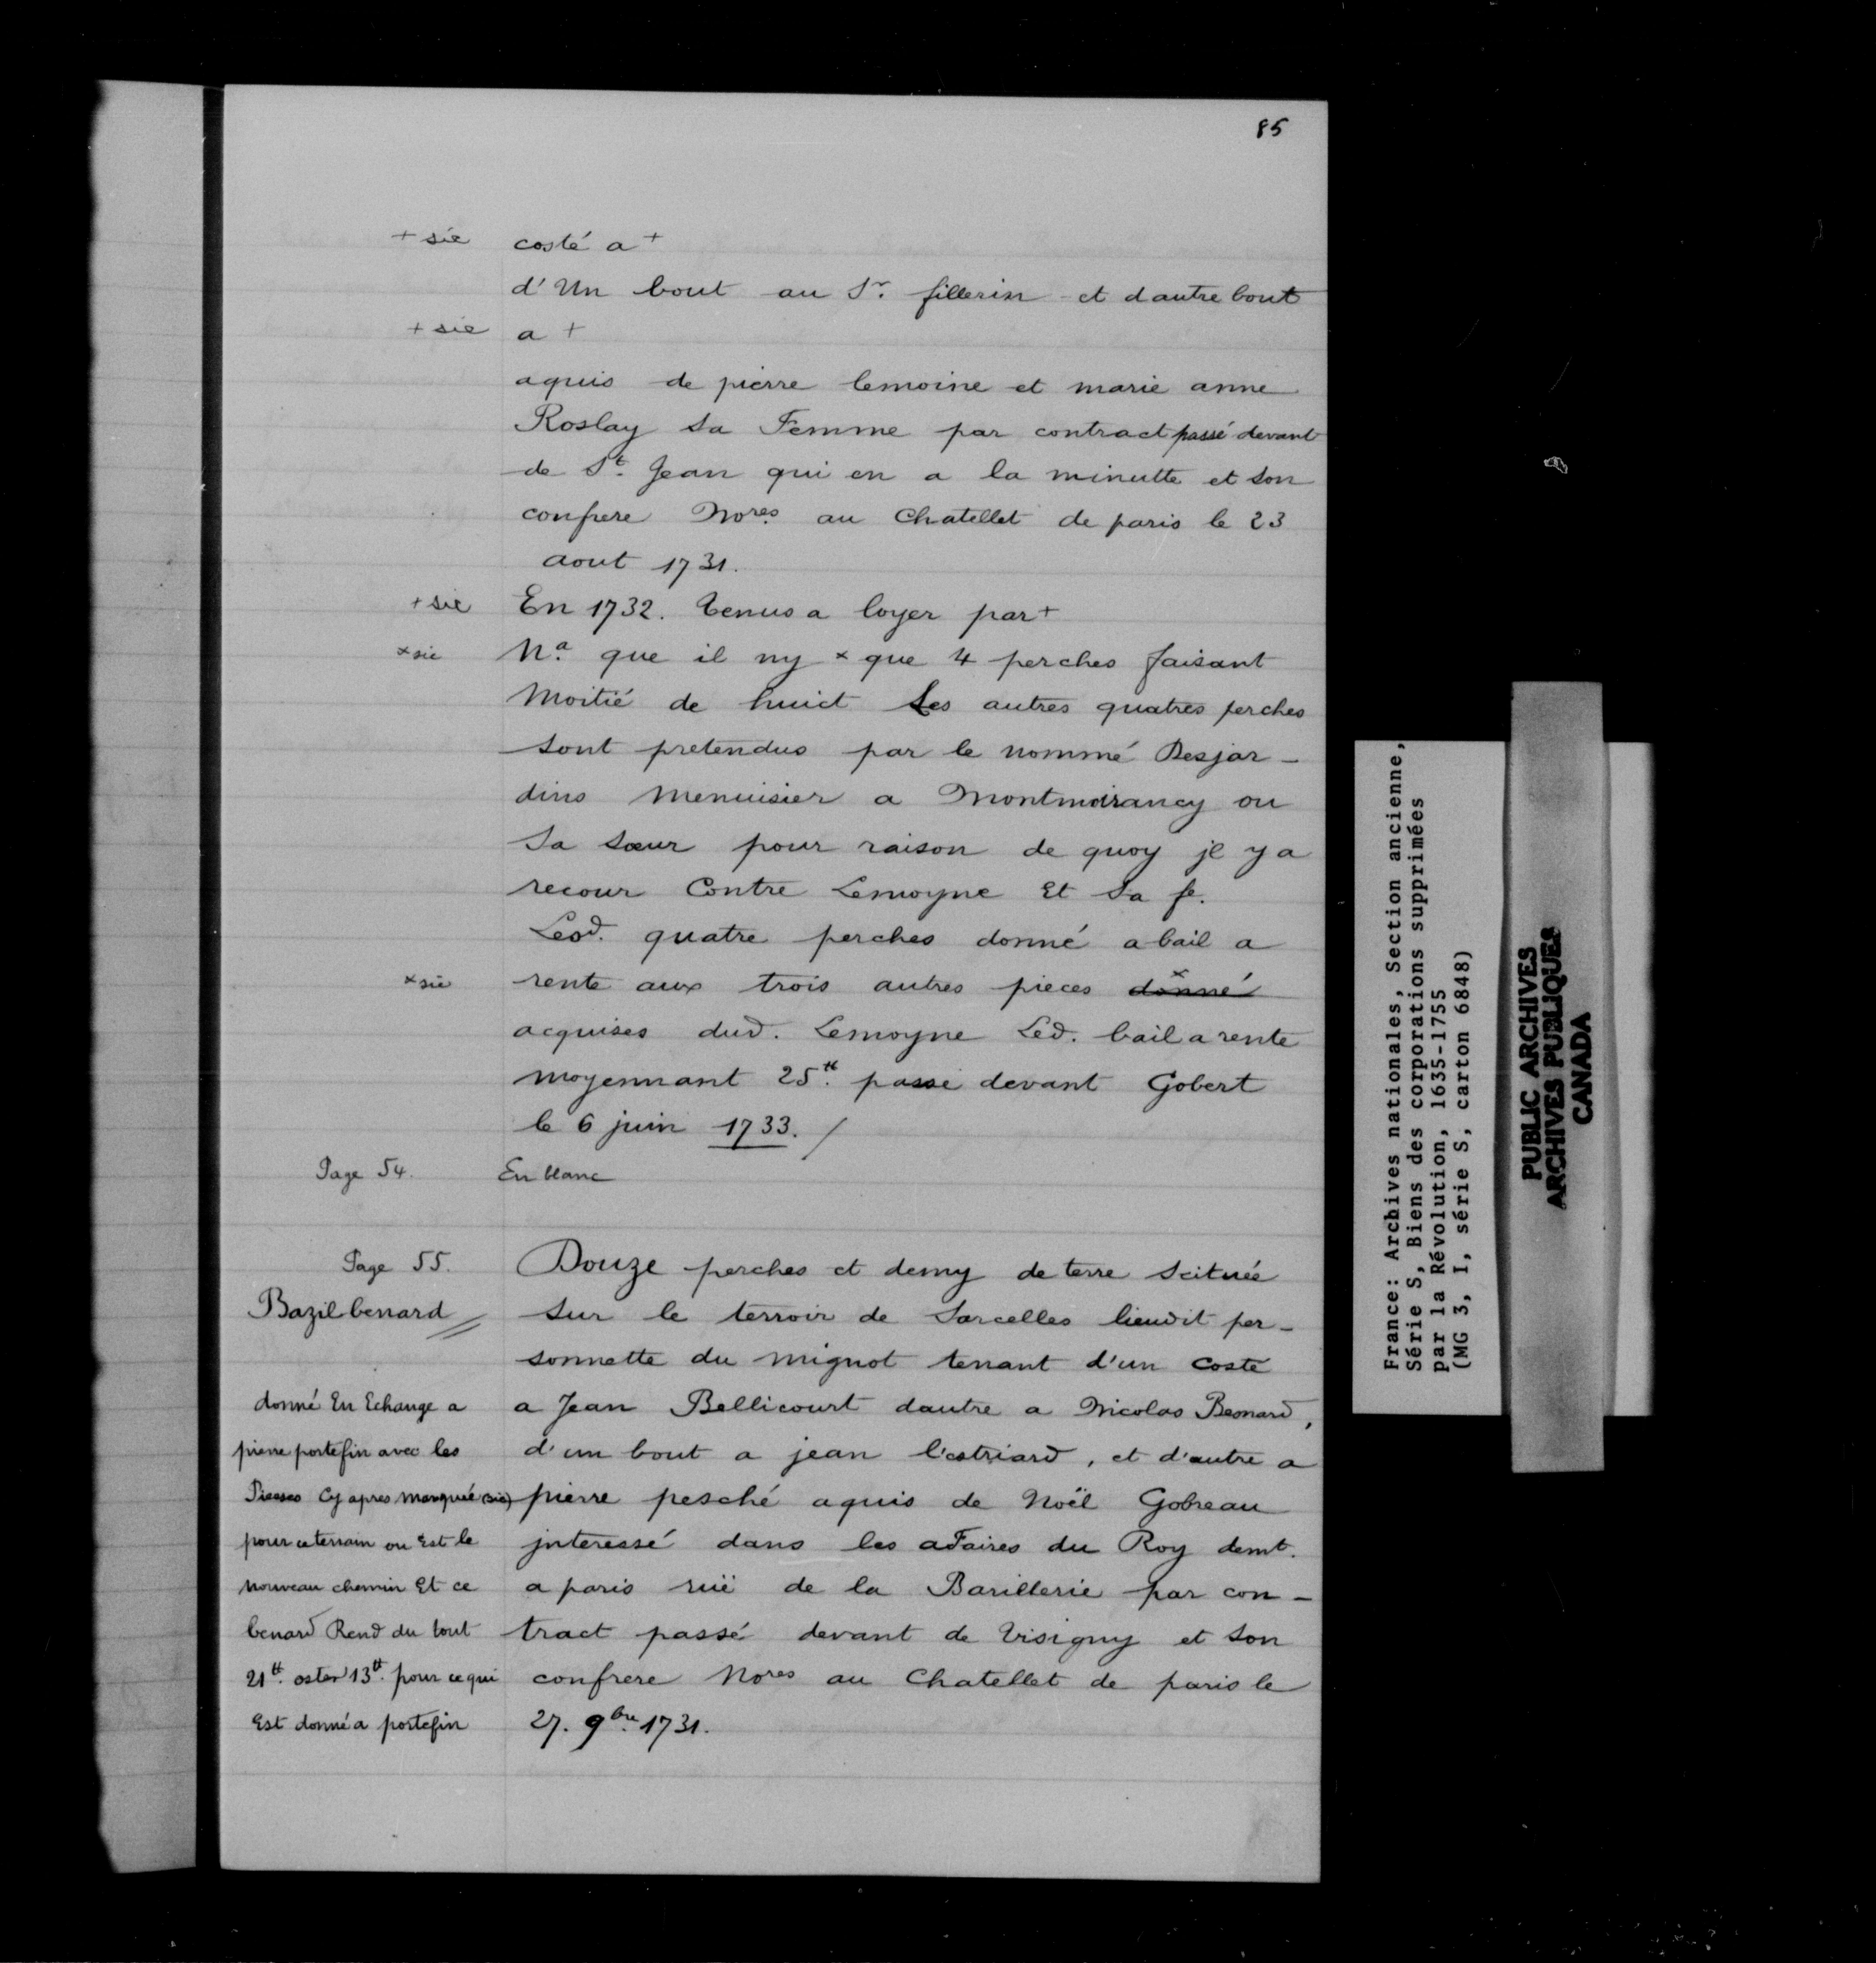 85
+ sic costé a +
d'Un bout au Sr. fillerin et dautre bout
+ sic a +
aquis de pierre lemoine et marie anne
Roslay sa Femme par contract passé devant
de St. Jean qui en a la minutte et son
confrere Nores au Chatellet de paris le 23
aout 1731.
+ sic En 1732. tenus a loyer par +
x sic Na. que il ny x que 4 perches faisant
Moitié de huict Les autres quatres perches
sont pretendus par le nommé Desjar-
dins Menuisier a Montmorancy ou
sa sœur pour raison de quoy jl y a
recour Contre Lemoyne Et sa fe.
Lesd. quatre perches donné a bail a
x sic rente aux trois autres pieces donné x
acquises dud. Lemoyne Led. bail a rente
moyennant 25tt. passé devant Gobert
le 6 juin 1733. /
Page 54. En blanc
Page 55.
Bazil benard
donné En Echange a
pierre portefin avec les
Pieces Cy apres marquée (sic)
pour ce terrain ou Est le
nouveau chemin Et ce
benard Rend du tout
21tt. oster 13tt. pour ce qui
Est donné a portefin
Douze perches et demy de terre scituée
sur le terroir de Sarcelles lieudit per-
sonnette du mignot tenant d'un costé
a Jean Bellicourt dautre a Nicolas Besnard,
d'un bout a jean l'estriard, et d'autre a
pierre pesché aquis de Noël Gobreau
jnteressé dans les aFaires du Roy demt.
a paris ruë de la Barillerie par con-
tract passé devant de Visigny et son
confrere Nores au Chatellet de paris le
27. 9bre. 1731.
France: Archives nationales, Section ancienne,
Série S, Biens des corporations supprimées
par la Révolution, 1635-1755
(MG 3, I, série S, carton 6848)
PUBLIC ARCHIVES
ARCHIVES PUBLIQUES
CANADA